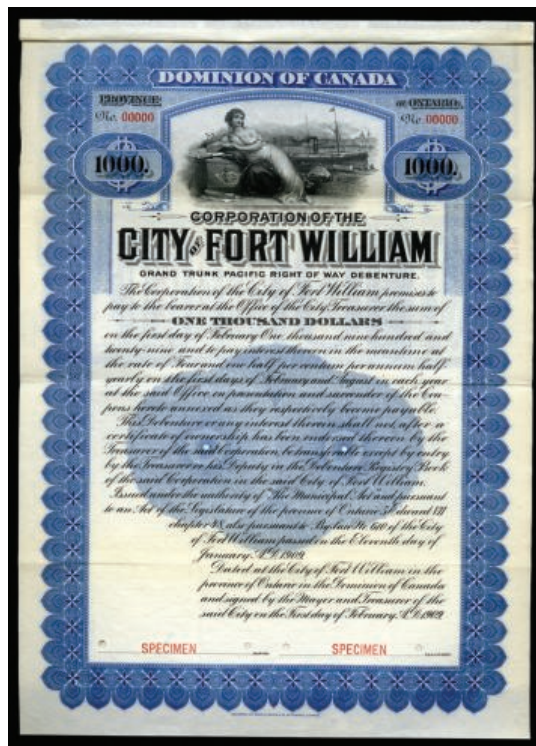 DOMINION OF CANADA
PROVINCE OF ONTARIO.
No. 00000 No. 00000
1000. 1000.
CORPORATION OF THE
CITY OF FORT WILLIAM
GRAND TRUNK PACIFIC RIGHT OF WAY DEBENTURE.
The Corporation of the City of Fort William promises to
pay to the bearer at the Office of the City Treasurer the sum of
ONE THOUSAND DOLLARS
on the first day of February One thousand nine hundred and
twenty-nine and to pay interest thereon in the meantime at
the rate of Four and one half per centum per annum half-
yearly on the first days of February and August in each year
at the said Office on presentation and surrender of the Cou-
pons hereto annexed as they respectively become payable.
This Debenture or any interest therein shall not, after a
certificate of ownership has been endorsed thereon by the
Treasurer of the said Corporation, be transferable except by entry
by the Treasurer or his Deputy in the Debenture Registry Book
of the said Corporation in the said City of Fort William.
Issued under the authority of The Municipal Act and pursuant
to an Act of the Legislature of the province of Ontario 5 Edward VII
chapter 48, also pursuant to By-law No. 610 of the City
of Fort William passed on the Eleventh day of
January A.D. 1909.
Dated at the City of Fort William in the
province of Ontario in the Dominion of Canada
and signed by the Mayor and Treasurer of the
said City on the First day of February A.D. 1909.
SPECIMEN SPECIMEN